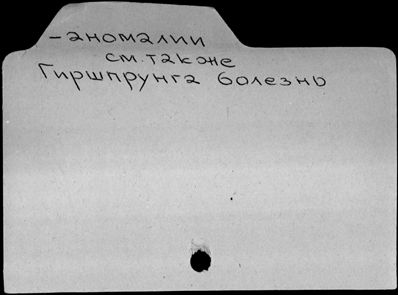 - аномалии
см. также
Гиршпрунга болезнь